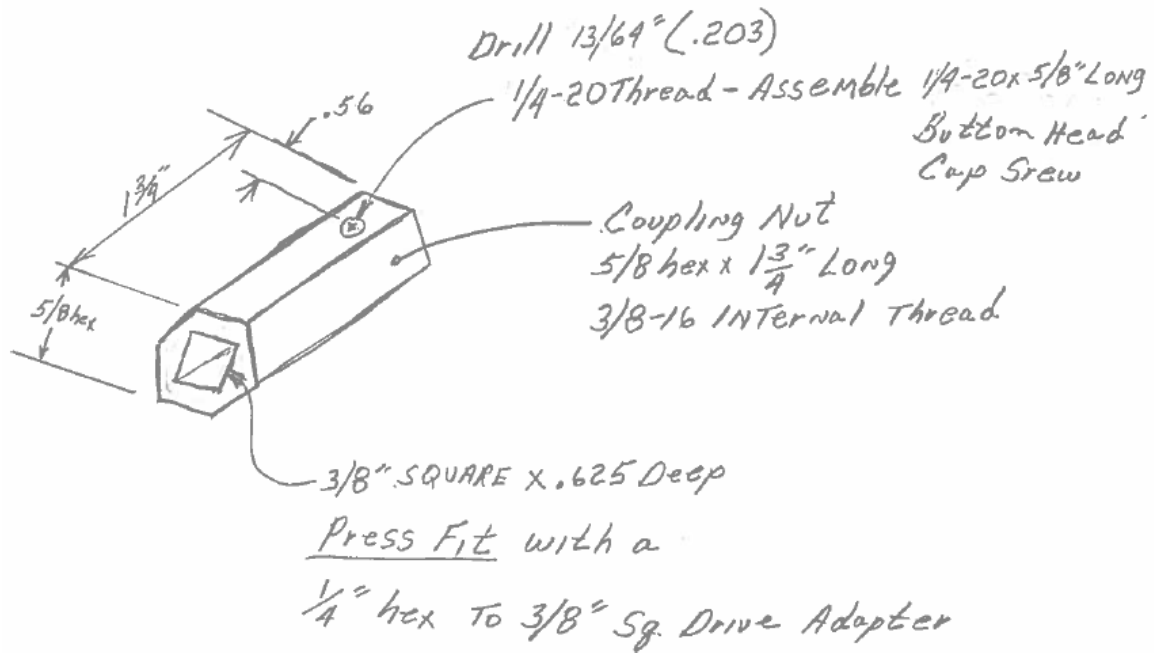 Drill 13/64" (.203)
1/4-20 Thread - Assemble 1/4-20 x 5/8" Long
Button Head
Cap Srew
.56
1 3/4"
Coupling Nut
5/8 hex x 1 3/4" Long
3/8-16 INTernal Thread
5/8 hex
3/8" SQUARE x .625 Deep
Press Fit with a
1/4" hex To 3/8" Sq. Drive Adapter